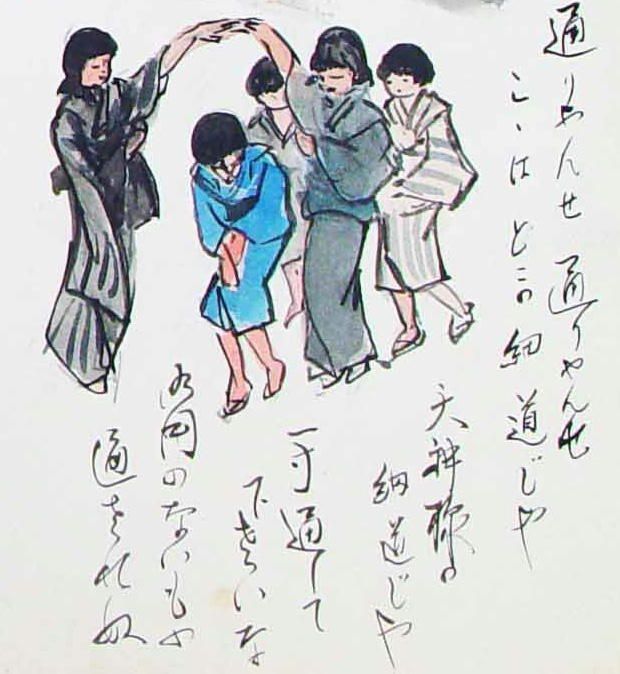 通りゃんせ 通りゃんせ
こゝはどこの細道じや
天神様の
細道じや
一寸通して
下さいな
御用のないもの
通させぬ